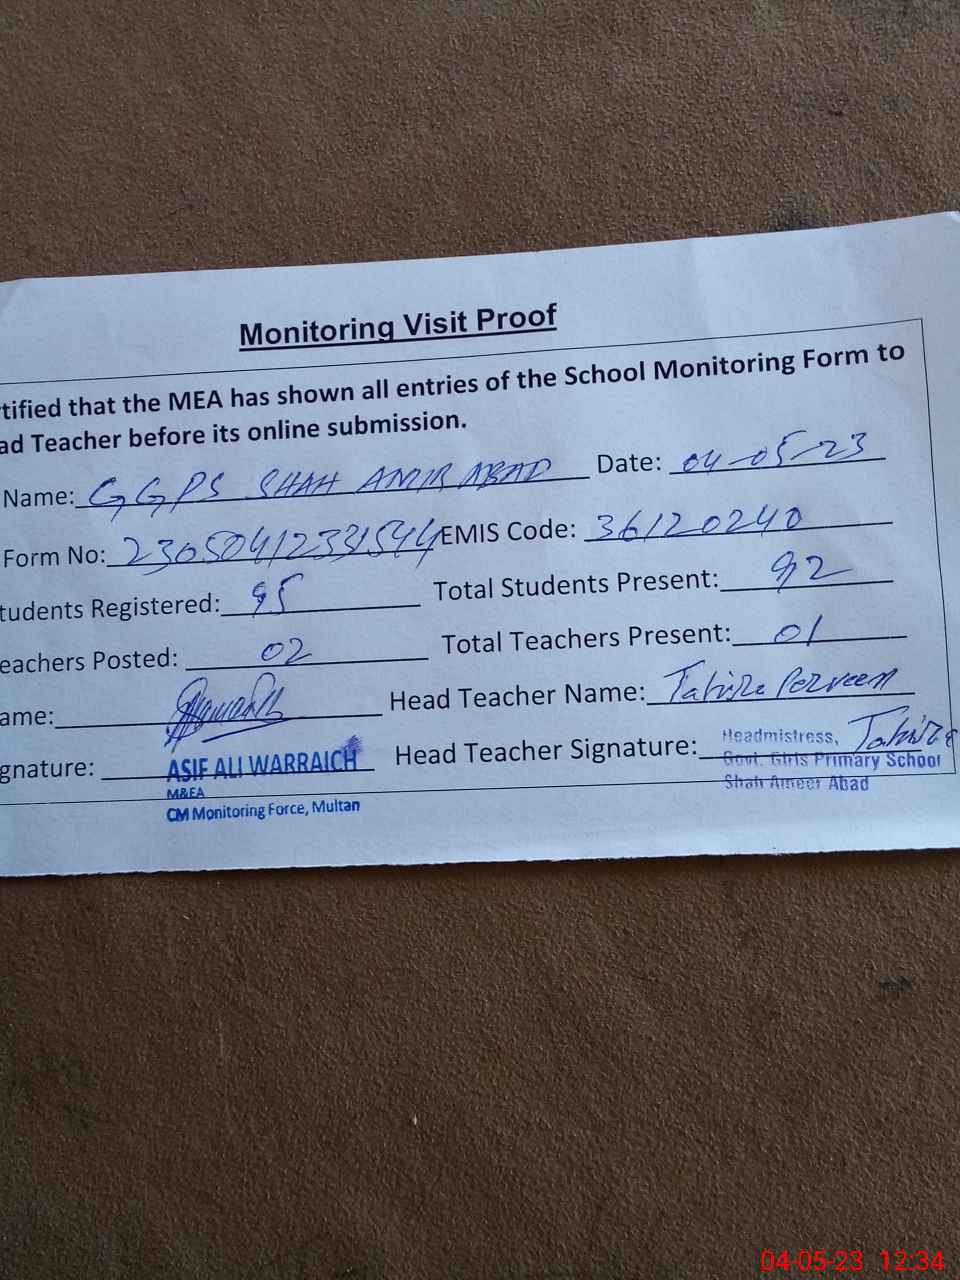 Monitoring Visit Proof
rtified that the MEA has shown all entries of the School Monitoring Form to
ad Teacher before its online submission.
Name: GGPS SHAH AMIR ABAD Date: 04-05-23
Form No: 23050412331544 EMIS Code: 36120240
tudents Registered: 95 Total Students Present: 92
eachers Posted: 02 Total Teachers Present: 01
ame: Head Teacher Name: Tahira Perveen
gnature: ASIF ALI WARRAICH Head Teacher Signature: Headmistress, Tahira
M&EA Govt. Girls Primary School
CM Monitoring Force, Multan Shah Ameer Abad
04-05-23 12:34